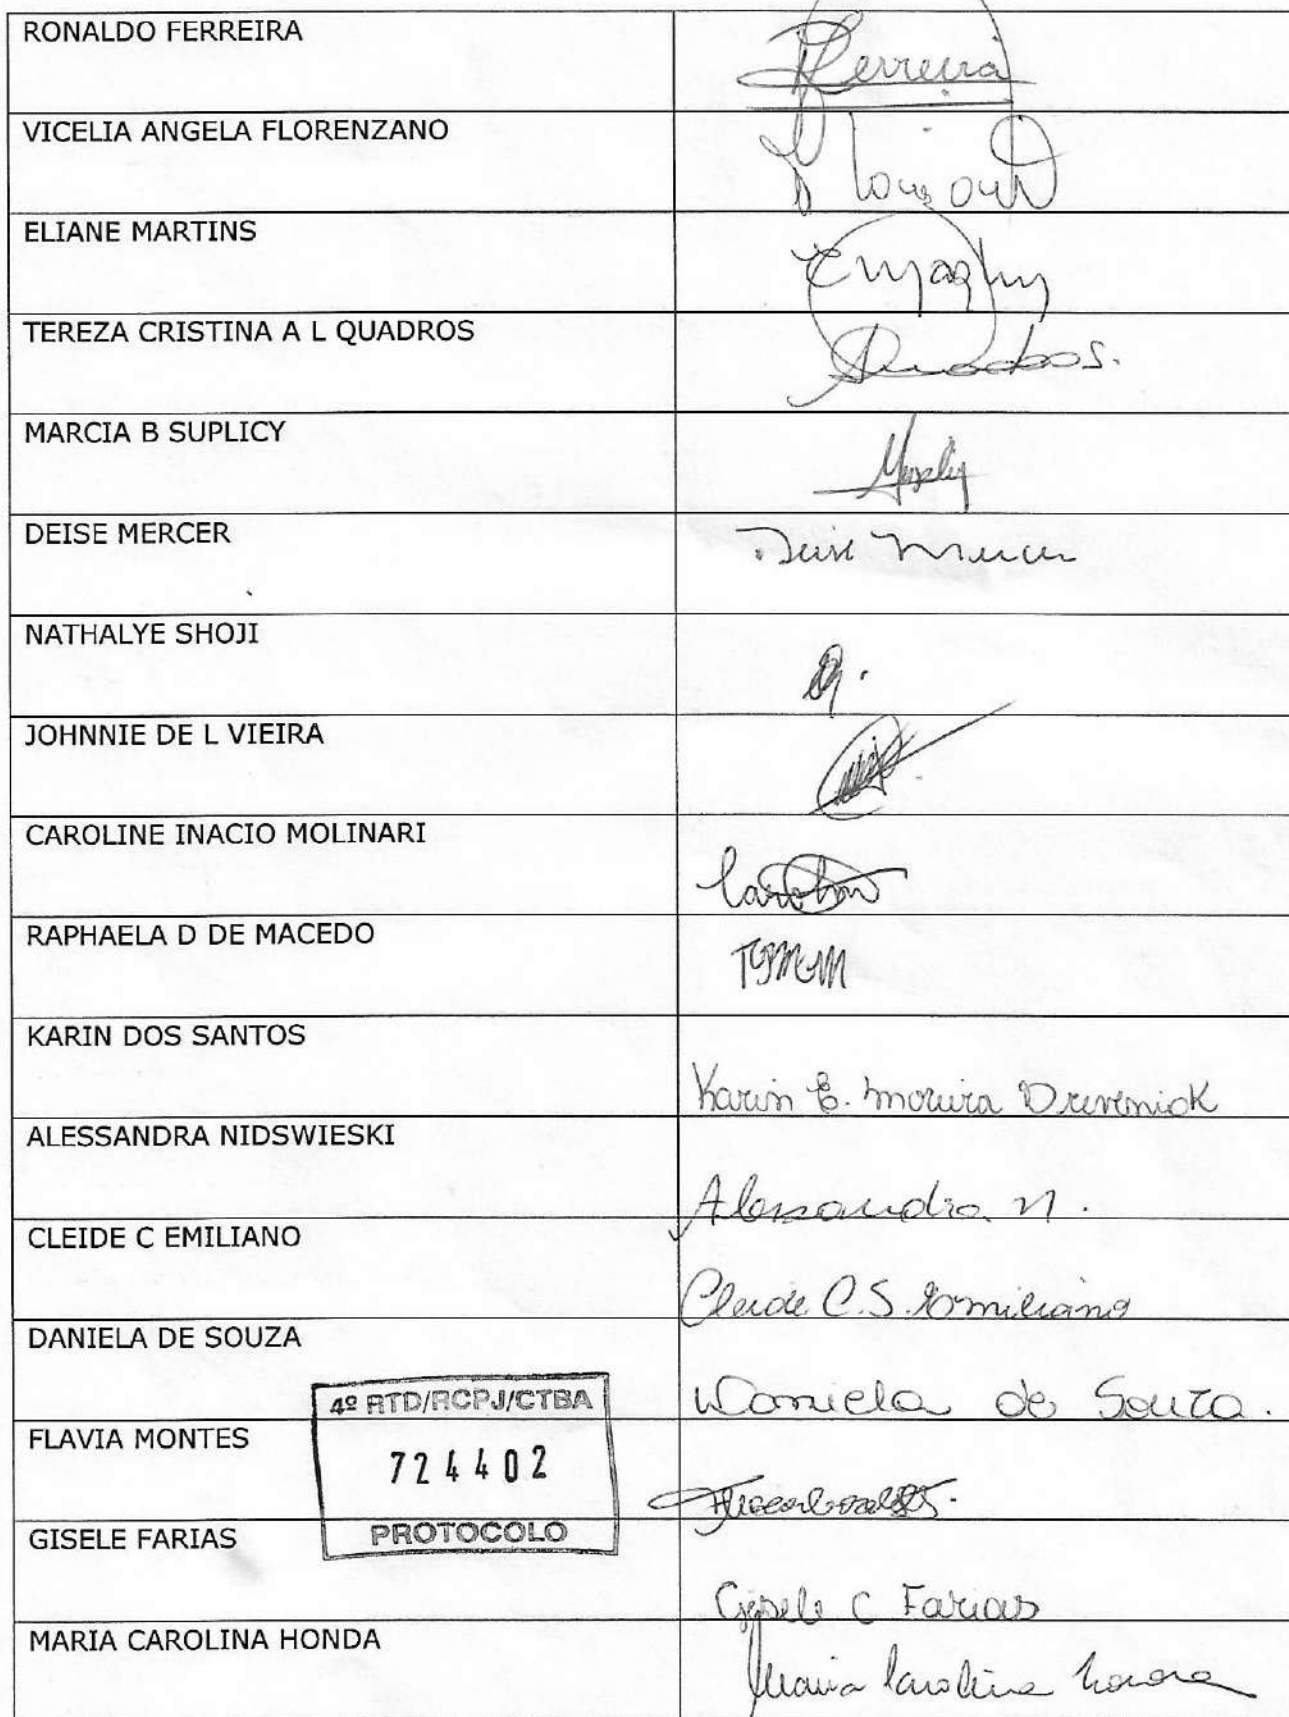 RONALDO FERREIRA
Ferreira
VICELIA ANGELA FLORENZANO
ELIANE MARTINS
TEREZA CRISTINA A L QUADROS
Quadros.
MARCIA B SUPLICY
DEISE MERCER
Deise Mercer
NATHALYE SHOJI
JOHNNIE DE L VIEIRA
CAROLINE INACIO MOLINARI
RAPHAELA D DE MACEDO
KARIN DOS SANTOS
Karin E. Moreira Dreveniak
ALESSANDRA NIDSWIESKI
Alessandra N.
CLEIDE C EMILIANO
Cleide C. S. Emiliano
DANIELA DE SOUZA
Daniela de Souza.
4º RTD/RCPJ/CTBA
FLAVIA MONTES
724402
PROTOCOLO
GISELE FARIAS
Gisele C Farias
MARIA CAROLINA HONDA
Maria Carolina Honda